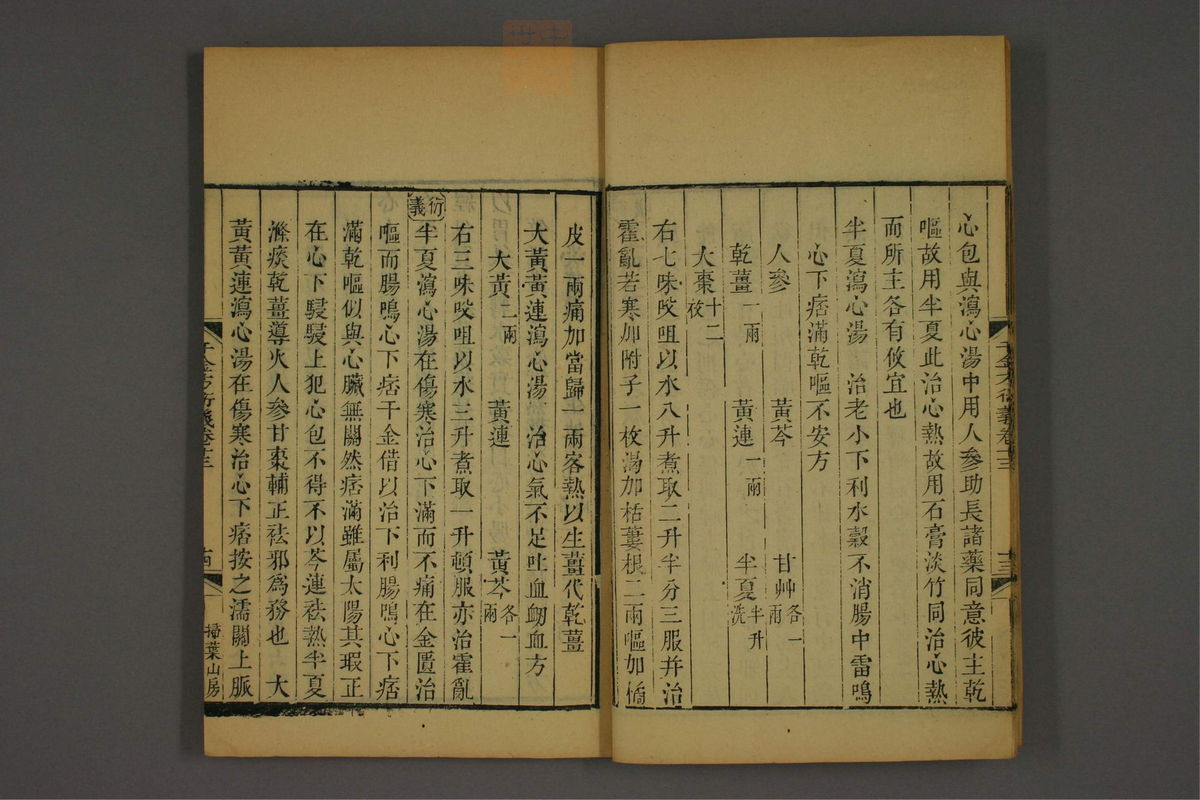 心包與瀉心湯中用人參助長諸藥同意彼主乾
嘔故用半夏此治心熱故用石膏淡竹同治心熱
而所主各有攸宜也
半夏瀉心湯　治老小下利水穀不消腸中雷鳴
心下痞滿乾嘔不安方
人參　黃芩　甘艸各一兩
乾薑一兩　黃連一兩　半夏半升洗
大棗十二枚
右七味㕮咀以水八升煮取二升半分三服并治
霍亂若寒加附子一枚渴加栝蔞根二兩嘔加橘
千金方衍義卷十三
十三
皮一兩痛加當歸一兩客熱以生薑代乾薑
大黃黃連瀉心湯　治心氣不足吐血衂血方
大黃二兩　黃連　黃芩各一兩
右三味㕮咀以水三升煮取一升頓服亦治霍亂
衍義　半夏瀉心湯在傷寒治心下滿而不痛在金匱治
嘔而腸鳴心下痞千金借以治下利腸鳴心下痞
滿乾嘔似與心臟無關然痞滿雖屬太陽其瑕正
在心下駸駸上犯心包不得不以芩連祛熱半夏
滌痰乾薑導火人參甘棗輔正祛邪爲務也　大
黃黃連瀉心湯在傷寒治心下痞按之濡關上脈
千金方衍義卷十三
十四
掃葉山房